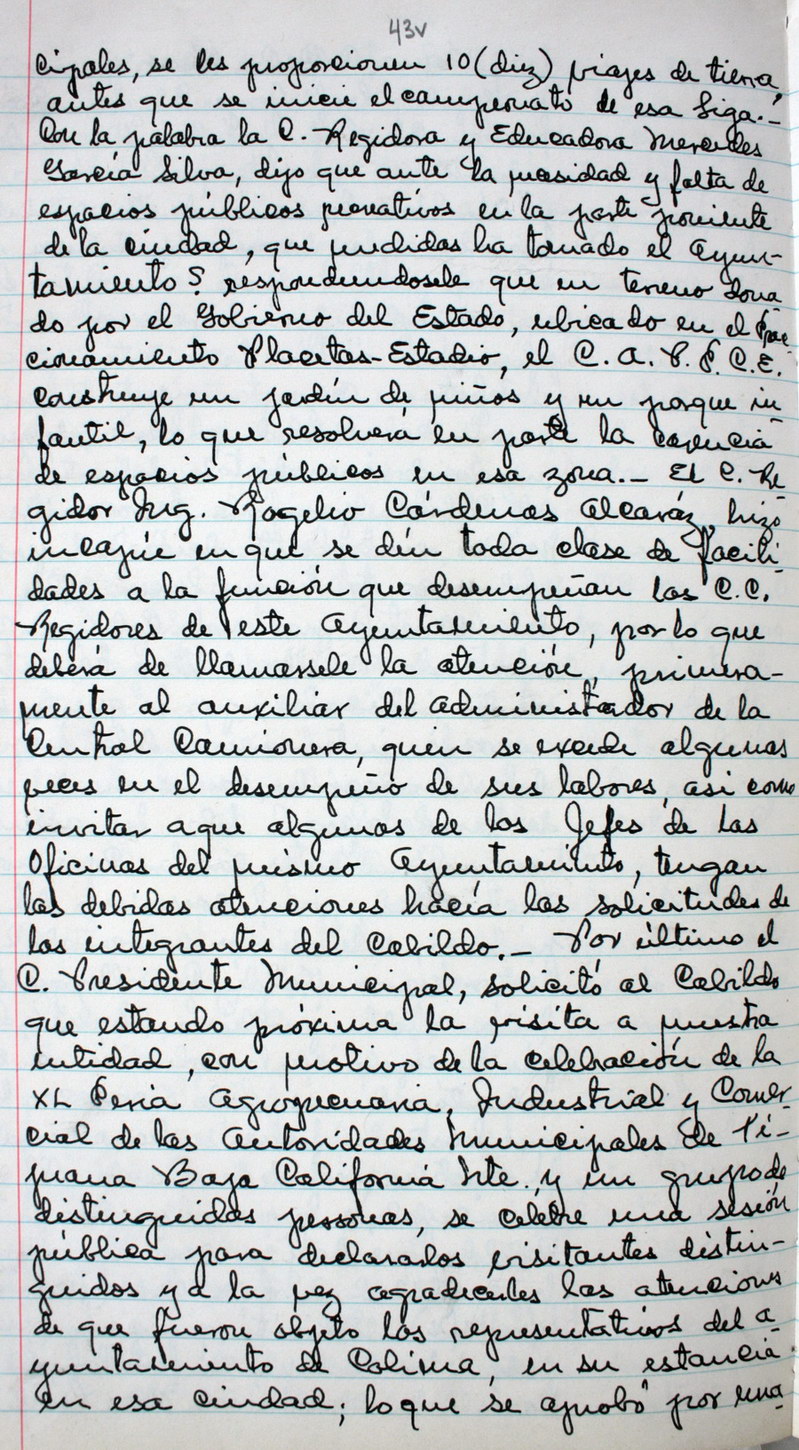 43v
cipales, se les proporcionen 10 (diez) viajes de tierra,
antes que se inicie el campeonato de esa Liga.-
Con la palabra la C. Regidora y Educadora Mercedes
García Silva, dijo que ante la necesidad y falta de
espacios públicos recreativos en la parte poniente
de la ciudad, que medidas ha tomado el Ayun-
tamiento? respondiendosele que en terreno dona
do por el Gobierno del Estado, ubicado en el Frac
cionamiento Placetas-Estadio, el C.A.P.F.C.E.
construye un jardín de niños y un parque in
fantil, lo que resolverá en parte la carencia
de espacios públicos en esa zona.- El C. Re
gidor Ing. Rogelio Cárdenas Alcaráz, hizo
incapie en que se dén toda clase de facili
dades a la función que desempeñan los C.C.
Regidores de este Ayuntamiento, por lo que
deberá de llamarsele la atención, primera-
mente al auxiliar del administrador de la
Central Camionera, quien se excede algunas
veces en el desempeño de sus labores, asi como
invitar a que algunos de los Jefes de las
Oficinas del mismo Ayuntamiento, tengan
las debidas atenciones hacía las solicitudes de
los integrantes del Cabildo.- Por último el
C. Presidente Municipal, solicitó al Cabildo
que estando próxima la visita a nuestra
entidad, con motivo de la celebración de la
XL Feria Agropecuaria, Industrial y Comer-
cial de las Autoridades Municipales de Ti-
juana Baja California Nte. y un grupo de
distinguidas personas, se celebre una sesión
pública para declararlos visitantes distin-
guidos y a la vez agradecerles las atenciones
de que fueron objeto los representativos del A
yuntamiento de Colima, en su estancia
en esa ciudad; lo que se aprobó por una